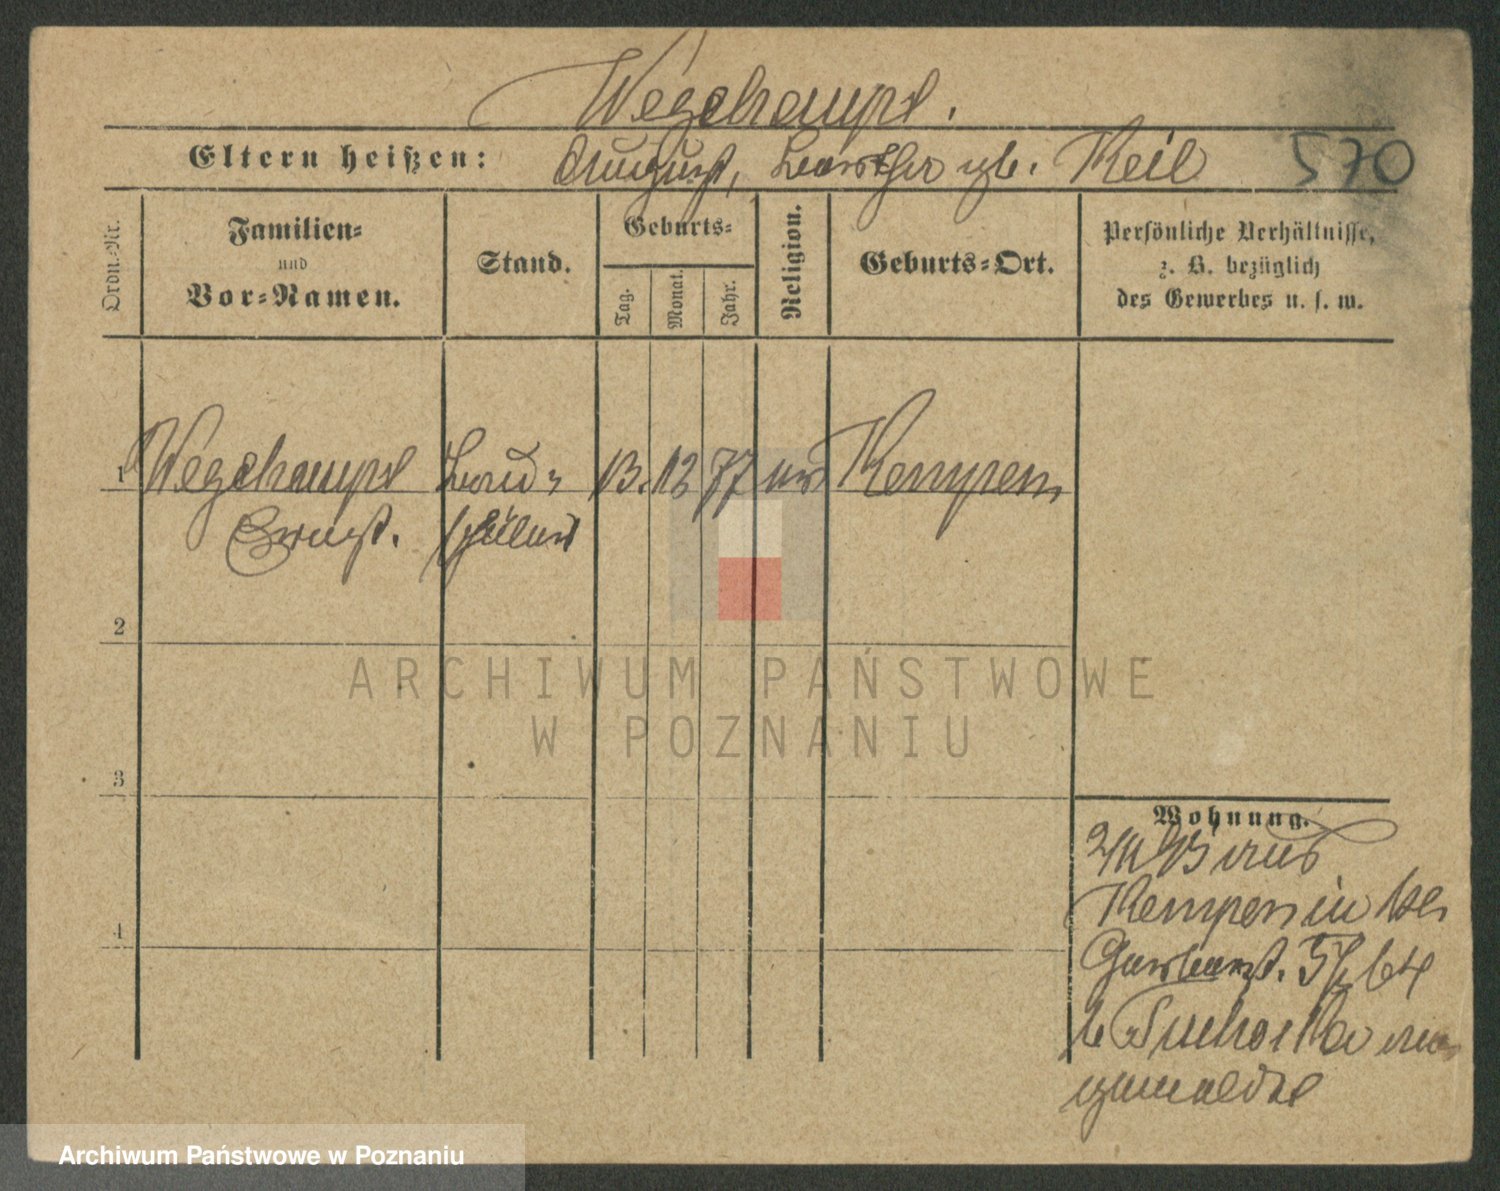 Wegehaupt.
Eltern heißen: August, Bertha gb. Keil 570
Ordn.-Nr.
Familien-
und
Vor-Namen.
Stand.
Geburts-
Tag.
Monat.
Jahr.
Religion.
Geburts-Ort.
Persönliche Verhältnisse,
z. B. bezüglich
des Gewerbes u. s. w.
1 Wegehaupt 13. 12 77 Kempen
Ernst. schüler
2
3
4
Wohnung.
aus
Kempen in
57/64
b
gemeldet
ARCHIWUM PAŃSTWOWE
W POZNANIU
Archiwum Państwowe w Poznaniu